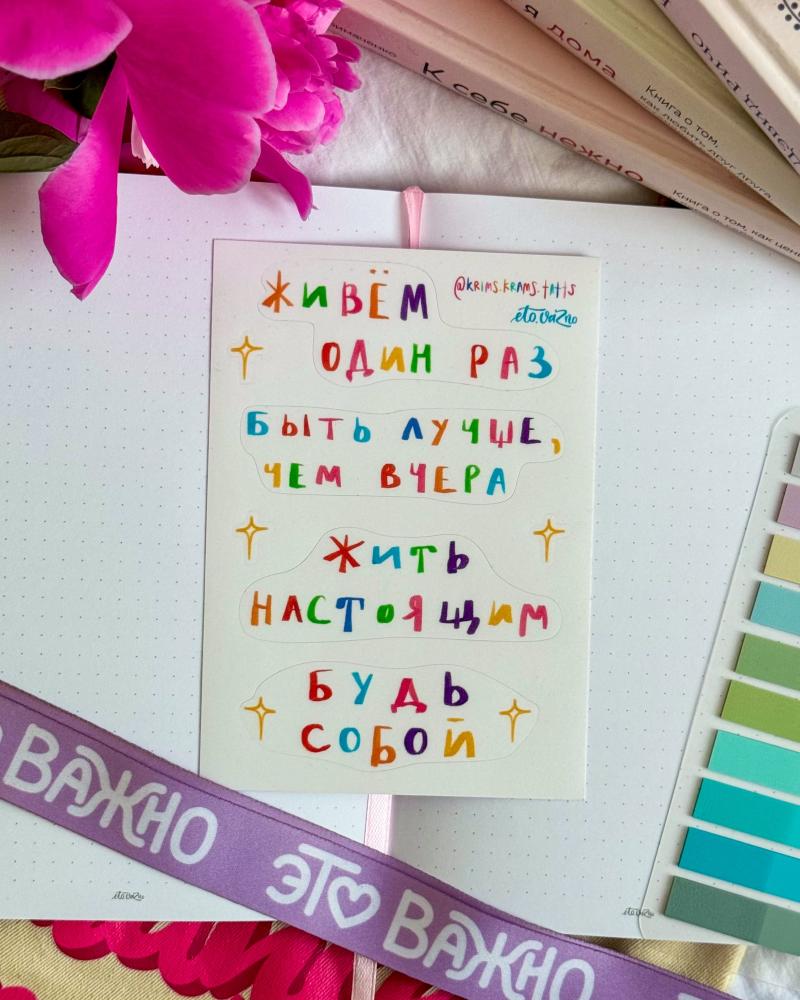 я дома
К себе нежно
Книга о том,
как любить друг друга
Книга о том, как
ЖИВЁМ
@KRIMS.KRAMS.TATTS
eto.vazno
ОДИН РАЗ
БЫТЬ ЛУЧШЕ,
ЧЕМ ВЧЕРА
ЖИТЬ
НАСТОЯЩИМ
БУДЬ
СОБОЙ
ВАЖНО
ЭТО ВАЖНО
eto.vazno
eto.vazno